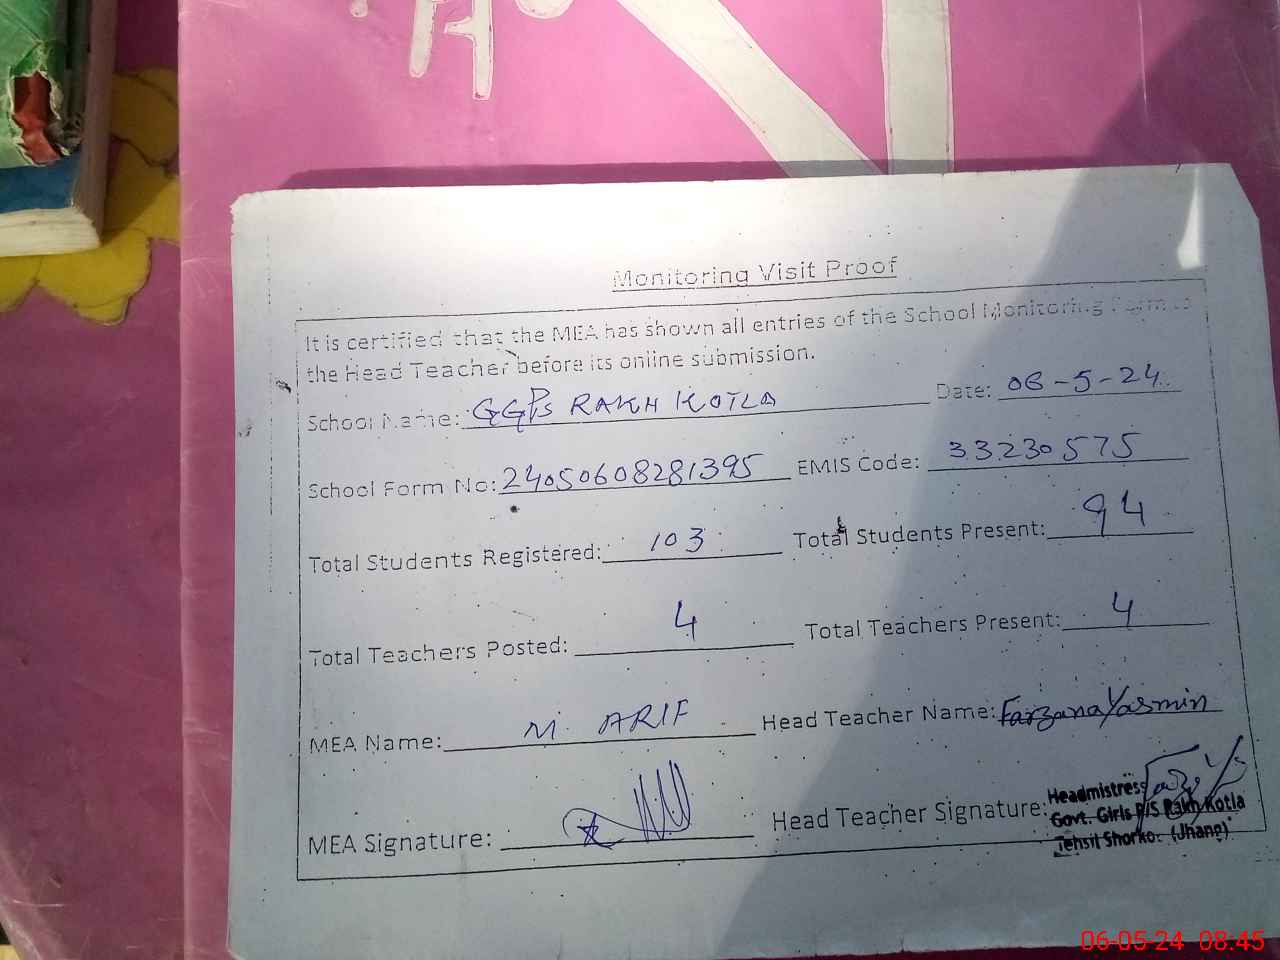 Monitoring Visit Proof
It is certified that the MEA has shown all entries of the School Monitoring Form to
the Head Teacher before its online submission.
School Name: GGPS RAKH KOTLA Date: 06-5-24
School Form No: 24050608281395 EMIS Code: 33230575
Total Students Registered: 103 Total Students Present: 94
Total Teachers Posted: 4 Total Teachers Present: 4
MEA Name: M. ARIF Head Teacher Name: Farzana Yasmin
MEA Signature: Head Teacher Signature:
Headmistress
Govt. Girls P/S Rakh Kotla
Tehsil Shorkot (Jhang)
06-05-24 08:45